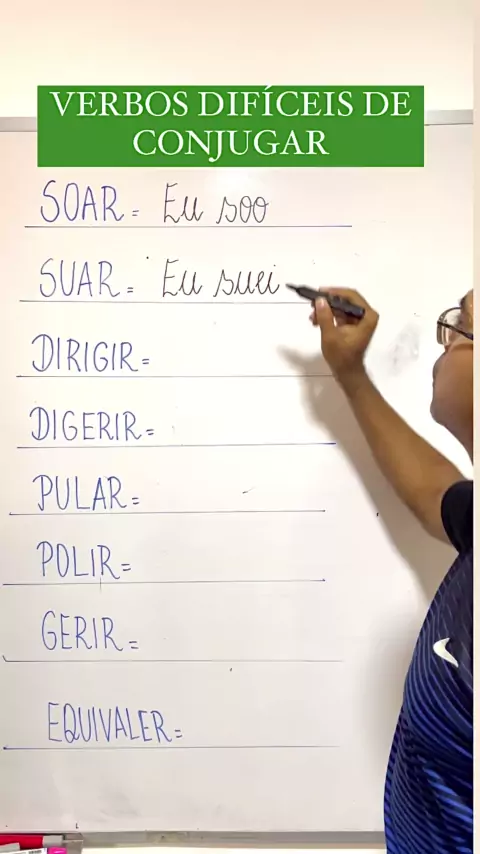 VERBOS DIFÍCEIS DE
CONJUGAR
SOAR = Eu soo
SUAR = Eu suei
DIRIGIR =
DIGERIR =
PULAR =
POLIR =
GERIR =
EQUIVALER =